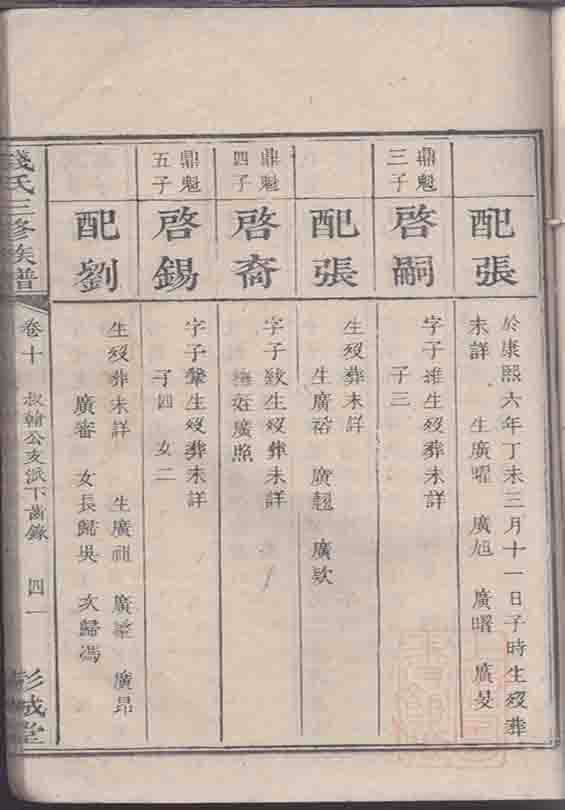 配張
於康熙六年丁未三月十一日子時生歿葬
未詳 生廣曜 廣旭 廣曙 廣旻
鼎魁
三子
啓嗣
字子維生歿葬未詳
子三
配張
生歿葬未詳
生廣裕 廣翹 廣欵
鼎魁
四子
啓裔
字子致生歿葬未詳
姪廣照
鼎魁
五子
啓錫
字子肇生歿葬未詳
子四 女二
配劉
生歿葬未詳 生廣祖 廣 廣昂
廣審 女長歸吳 次歸馮
錢氏三修族譜
卷十 叔韓公支派下齒錄 四一
彭城堂